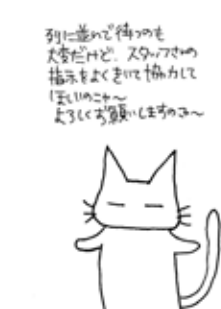 列に並んで待つのも
大変だけど、スタッフさんの
指示をよくきいて協力して
ほしいのニャ〜
よろしくお願いしますのニャ〜